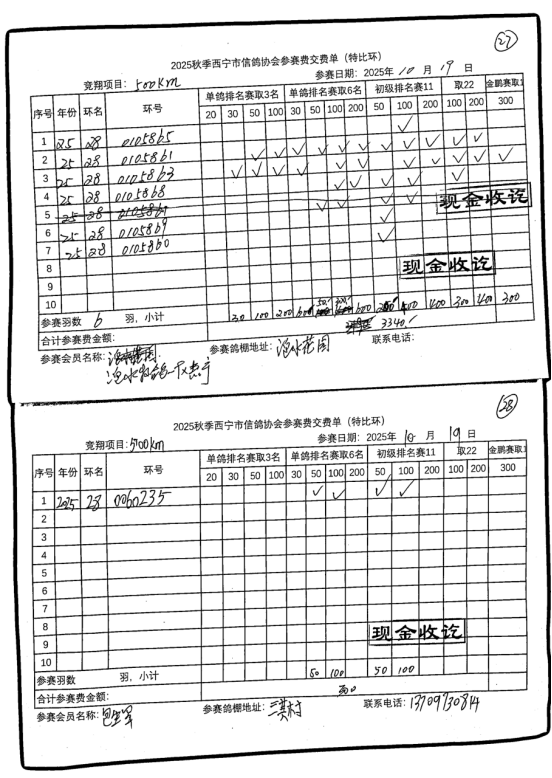 27
2025秋季西宁市信鸽协会参赛费交费单（特比环）
竞翔项目: 500Km 参赛日期: 2025年 10 月 19 日
序号 年份 环名 环号 单鸽排名赛取3名 单鸽排名赛取6名 初级排名赛11 取22 金鹏赛取1
20 30 50 100 30 50 100 200 50 100 200 100 200 300
1 25 28 0105865 ✓
2 25 28 0105861 ✓ ✓ ✓ ✓ ✓ ✓ ✓ ✓ ✓ ✓ ✓
3 25 28 0105863 ✓ ✓ ✓ ✓ ✓ ✓ ✓ ✓ ✓ ✓ ✓
4 25 28 0105868 ✓ ✓ ✓ ✓ ✓
5 25 28
6 25 28 0105869 ✓
7 25 28 0105860 ✓
8
9
10
现金收讫
现金收讫
参赛羽数 6 羽，小计 30 100 200 600 400 300 400 300
合计参赛费金额: 3340
参赛会员名称: 参赛鸽棚地址: 联系电话:
28
2025秋季西宁市信鸽协会参赛费交费单（特比环）
竞翔项目: 500Km 参赛日期: 2025年 10 月 19 日
序号 年份 环名 环号 单鸽排名赛取3名 单鸽排名赛取6名 初级排名赛11 取22 金鹏赛取1
20 30 50 100 30 50 100 200 50 100 200 100 200 300
1 2025 28 0060235 ✓ ✓ ✓ ✓
2
3
4
5
6
7
8
9
10
现金收讫
参赛羽数 羽，小计 50 100 50 100
合计参赛费金额: 300
参赛会员名称: 参赛鸽棚地址: 三其村 联系电话: 13709730814